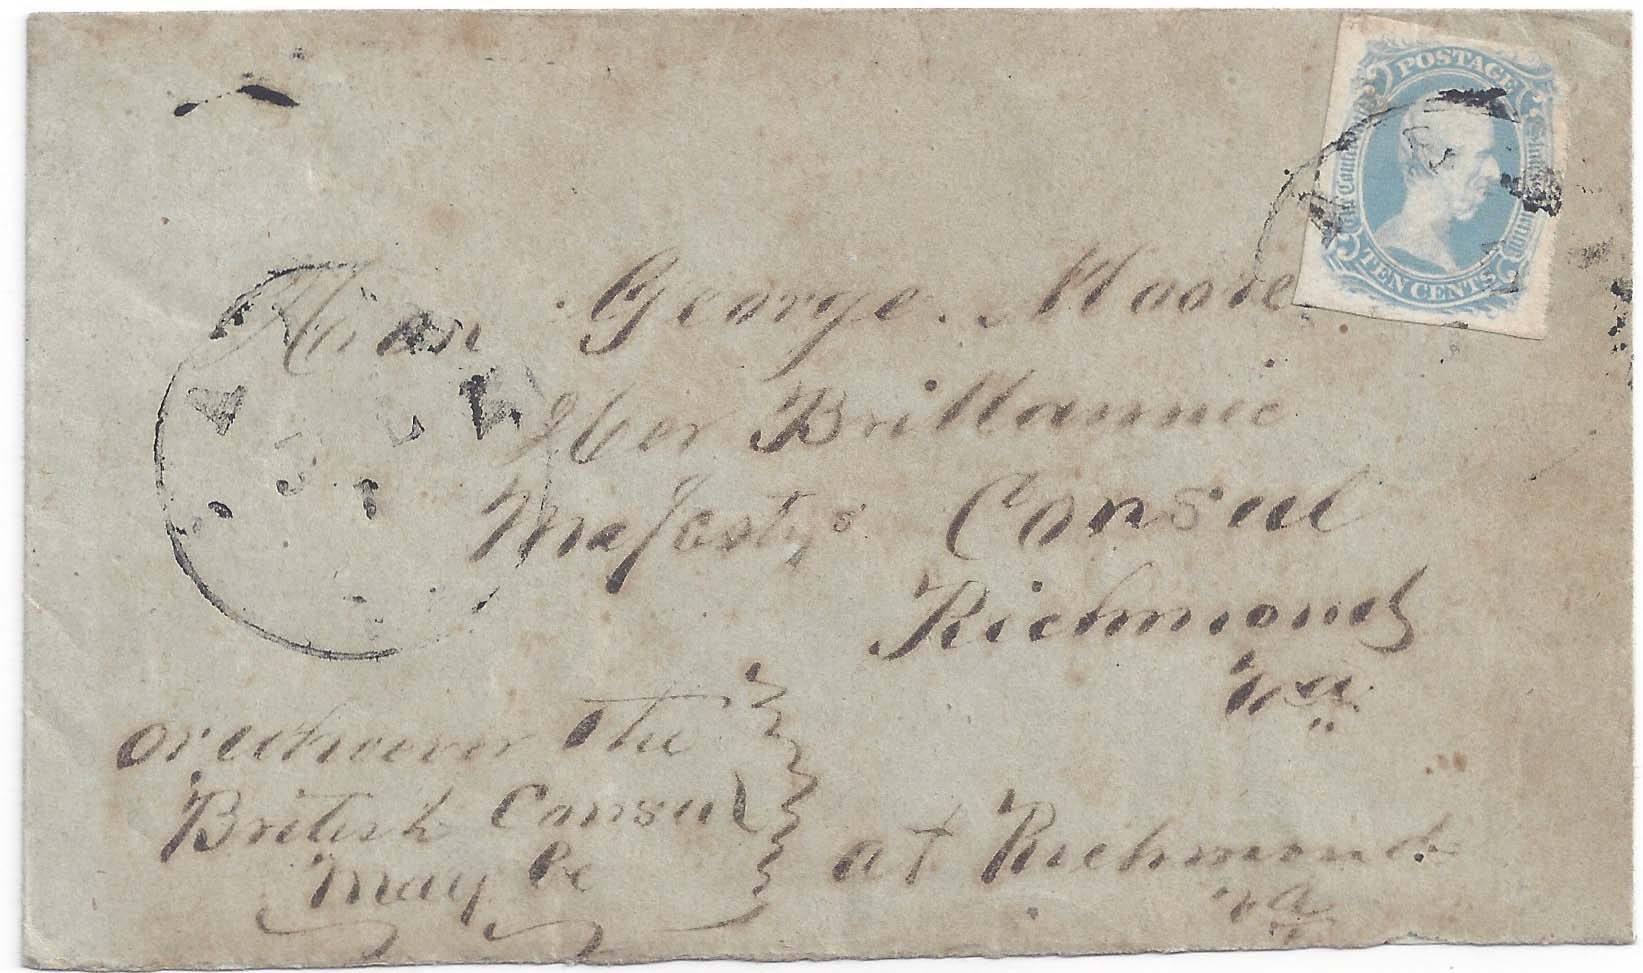 POSTAGE
The Confederate States of America
TEN CENTS
Hon George Moore
Her Brittannic
Majestys Consul
Richmond
Va
or whoever the
British Consul
may be
at Richmond
Va